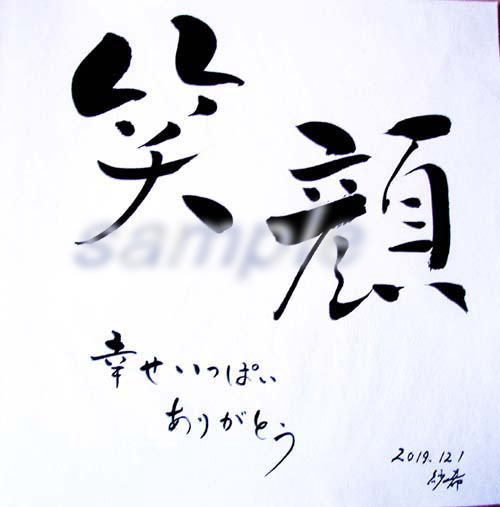 笑顔
sample
幸せいっぱい
ありがとう
2019.12.1
紗希